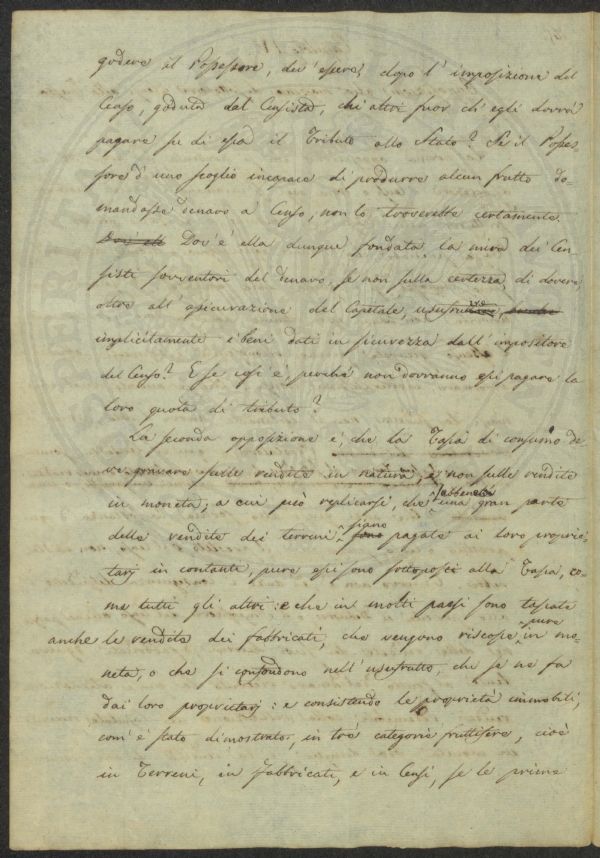 godere al Possessore, dev' essere, dopo l' imposizione del
Censo, goduta dal Censista, chi altri fuor ch' egli dovrà
pagare su di essa il Tributo allo Stato? Se il Posses-
sore d' uno scoglio incapace di produrre alcun frutto do-
mandasse denaro a Censo, non lo troverebbe certamente.
Dov' è ella dunque fondata la mira de' Cen-
sisti sovventori del denaro, se non sulla certezza di dovere,
oltre all' assicurazione del Capitale,
implicitamente i beni dati in sicurezza dall' impositore
del Censo? E se così è, perché non dovranno essi pagare la
loro quota di tributo?
La seconda opposizione è, che la Tassa di consumo de-
ve gravare sulle rendite in natura, e non sulle rendite
in moneta; a cui può replicarsi, che sebbene una gran parte
delle rendite dei terreni siano sono pagate ai loro proprie-
tarj in contante, pure essi sono sottoposti alla Tassa, co-
me tutti gli altri: e che in molti paesi sono tassate
anche le rendite dei fabbricati, che vengono riscosse pure in mo-
neta, o che si confondono nell' usufrutto, che se ne fa
dai loro proprietarj: e consistendo le proprietà immobili,
com' è stato dimostrato, in trè categorie fruttifere, cioè
in Terreni, in Fabbricati, e in Censi, se le prime